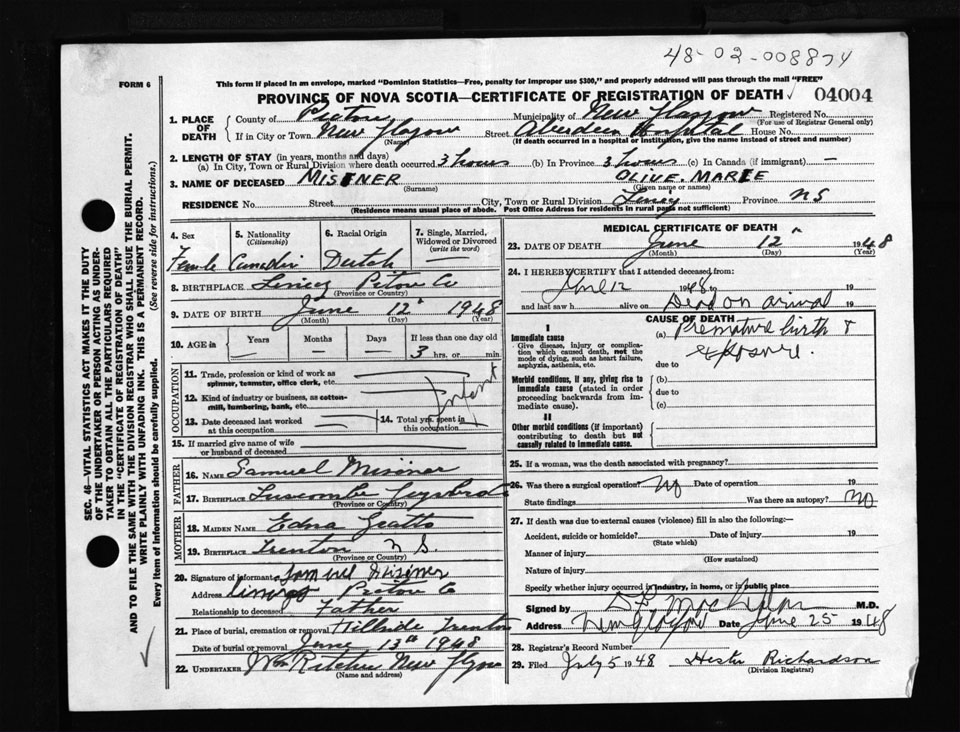 48-02-008874
FORM 6
This form if placed in an envelope, marked "Dominion Statistics—Free, penalty for improper use $300," and properly addressed will pass through the mail "FREE"
PROVINCE OF NOVA SCOTIA—CERTIFICATE OF REGISTRATION OF DEATH √ 04004
1. PLACE OF DEATH
County of Pictou Municipality of New Glasgow Registered No.
(For use of Registrar General only)
If in City or Town New Glasgow Street Aberdeen Hospital House No.
(Name) (If death occurred in a hospital or institution, give its name instead of street and number)
2. LENGTH OF STAY (in years, months and days)
(a) In City, Town or Rural Division where death occurred 3 hours (b) In Province 3 hours (c) In Canada (if immigrant) —
3. NAME OF DECEASED MISENER OLIVE. MARIE
(Surname) (Given name or names)
RESIDENCE No. Street City, Town or Rural Division Province NS
(Residence means usual place of abode. Post Office Address for residents in rural parts not sufficient)
4. Sex
Female
5. Nationality
(Citizenship)
6. Racial Origin
Dutch
7. Single, Married, Widowed or Divorced
(write the word)
8. BIRTHPLACE Co
(Province or Country)
9. DATE OF BIRTH June 12 1948
(Month) (Day) (Year)
10. AGE in
Years Months Days If less than one day old
— — — 3 hrs. or min.
OCCUPATION
11. Trade, profession or kind of work as spinner, teamster, office clerk, etc.
12. Kind of industry or business, as cotton-mill, lumbering, bank, etc.
Infant
13. Date deceased last worked at this occupation
14. Total yrs. spent in this occupation
15. If married give name of wife or husband of deceased
FATHER
16. NAME Samuel Misener
17. BIRTHPLACE
(Province or Country)
MOTHER
18. MAIDEN NAME Edna Gratto
19. BIRTHPLACE Trenton N S.
(Province or Country)
20. Signature of informant Samuel Misener
Address Pictou Co
Relationship to deceased Father
21. Place of burial, cremation or removal Hillside Trenton
Date of burial or removal June 13th 1948
22. UNDERTAKER Wm Ritchie New Glasgow
(Name and address)
MEDICAL CERTIFICATE OF DEATH
23. DATE OF DEATH June 12 1948
(Month) (Day) (Year)
24. I HEREBY CERTIFY that I attended deceased from
June 12 1948 19
and last saw h alive on Dead on arival 19
CAUSE OF DEATH
I
Immediate cause
Give disease, injury or complication which caused death, not the mode of dying, such as heart failure, asphyxia, asthenia, etc.
(a) Premature birth &
exposure.
due to
Morbid conditions, if any, giving rise to immediate cause (stated in order proceeding backwards from immediate cause).
(b)
due to
(c)
II
Other morbid conditions (if important) contributing to death but not causally related to immediate cause.
25. If a woman, was the death associated with pregnancy?
26. Was there a surgical operation? No Date of operation 19
State findings Was there an autopsy? No
27. If death was due to external causes (violence) fill in also the following:—
Accident, suicide or homicide? Date of injury 19
(State which)
Manner of injury
(How sustained)
Nature of injury
Specify whether injury occurred in industry, in home, or in public place
Signed by M.D.
Address New Glasgow Date June 25 1948
28. Registrar's Record Number
29. Filed July 5 1948 Hester Richardson
(Division Registrar)
SEC. 46—VITAL STATISTICS ACT MAKES IT THE DUTY
OF THE UNDERTAKER OR PERSON ACTING AS UNDER-
TAKER TO OBTAIN ALL THE PARTICULARS REQUIRED
IN THE "CERTIFICATE OF REGISTRATION OF DEATH"
AND TO FILE THE SAME WITH THE DIVISION REGISTRAR WHO SHALL ISSUE THE BURIAL PERMIT.
WRITE PLAINLY WITH UNFADING INK. THIS IS A PERMANENT RECORD.
Every item of information should be carefully supplied. (See reverse side for instructions.)